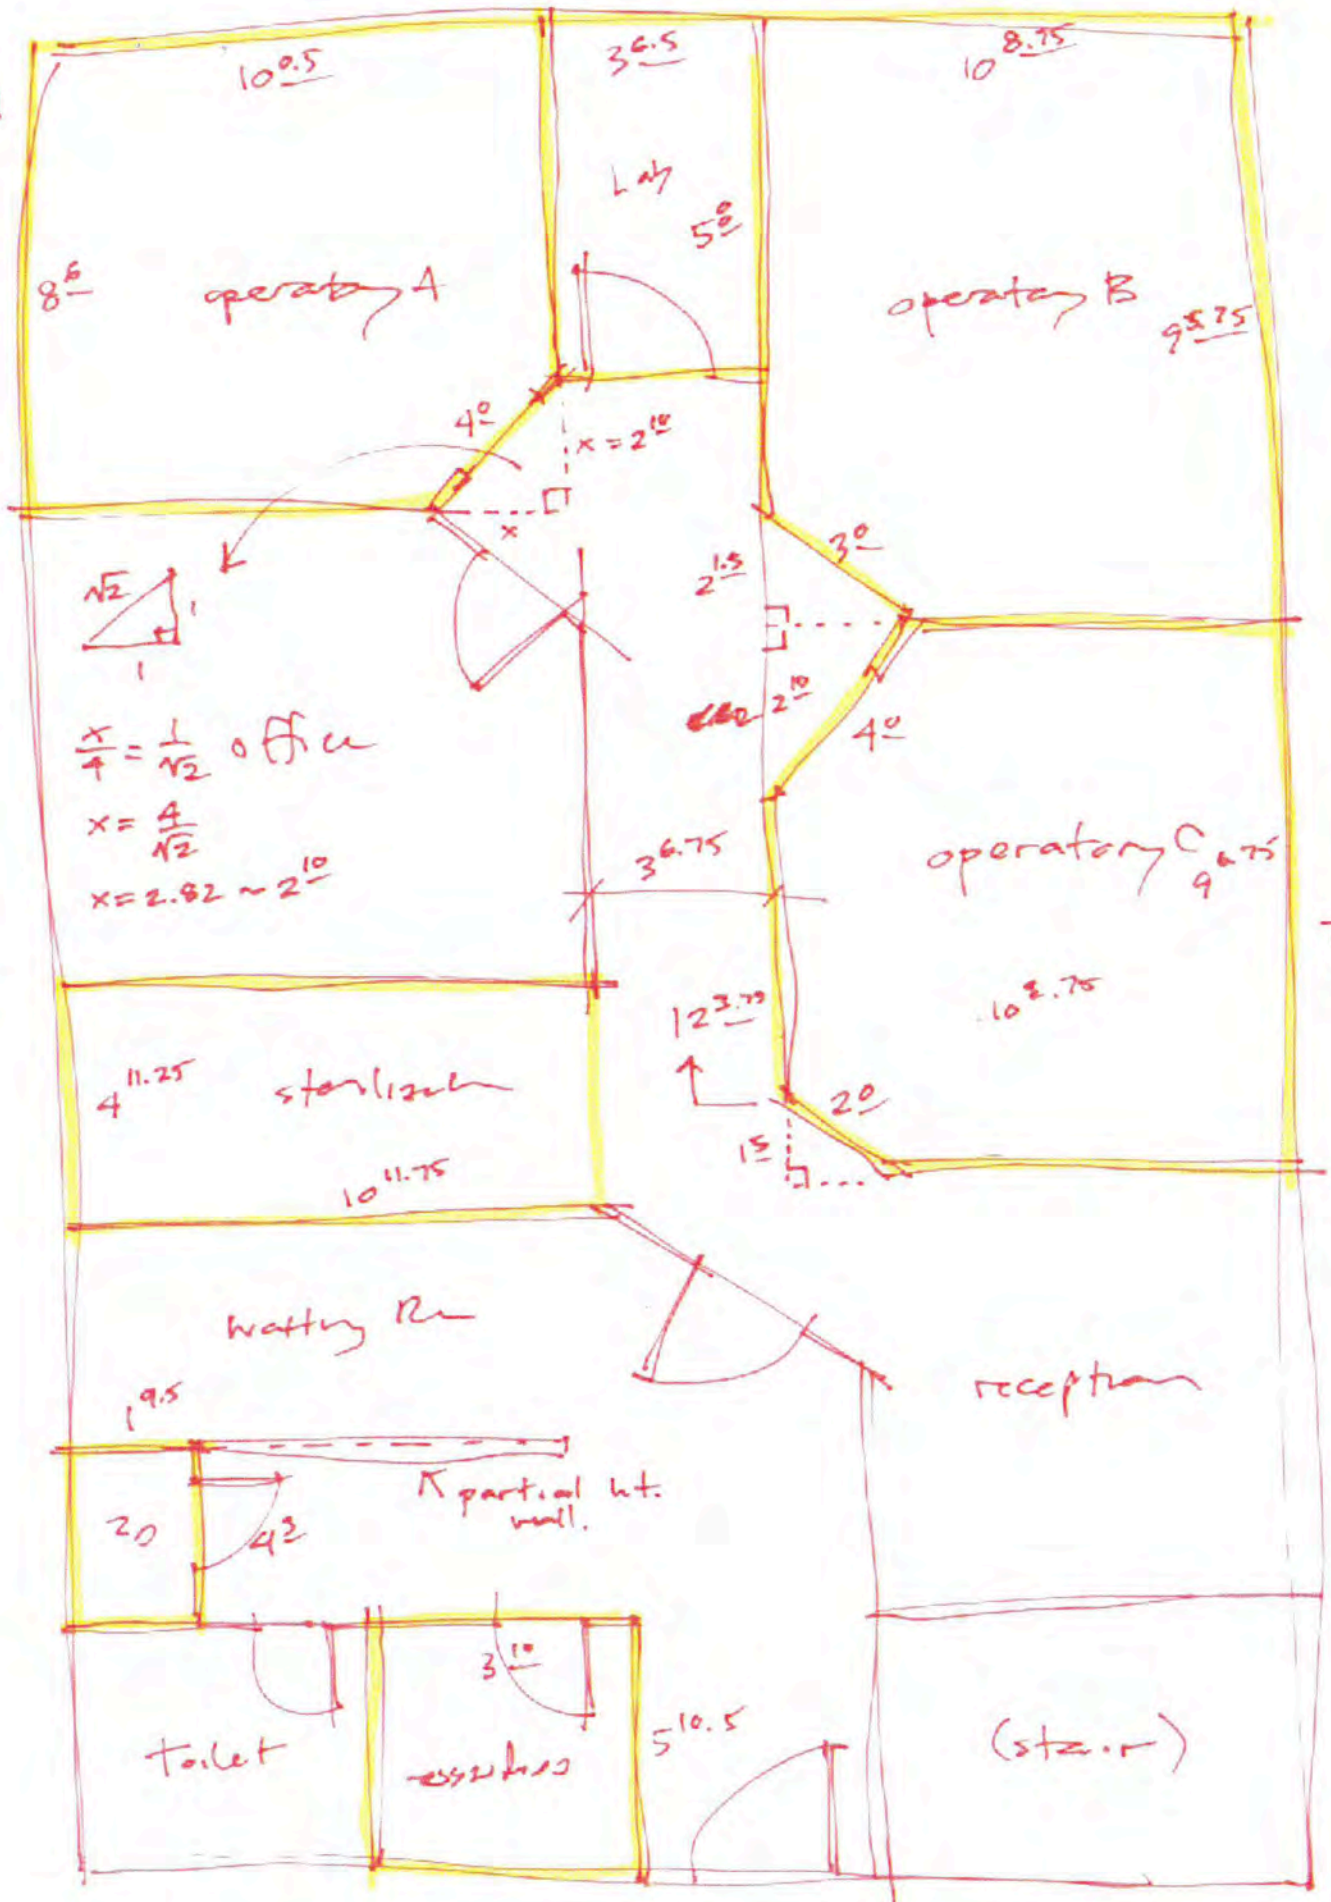 10 0.5
3 6.5
10 8.75
Lab
5 0
8 6
operatory A
operatory B
9 5.75
4 0
x = 2 10
x
3 0
√2
1
1
2 1.5
2 10
4 0
x/4 = 1/√2
office
x = 4/√2
x = 2.82 ~ 2 10
3 6.75
operatory C
9 6.75
10 8.75
12 3.75
4 11.25
2 0
1 5
10 11.75
waiting Rm
reception
1 9.5
partial ht.
wall.
4 3
3 10
5 10.5
toilet
(stair)